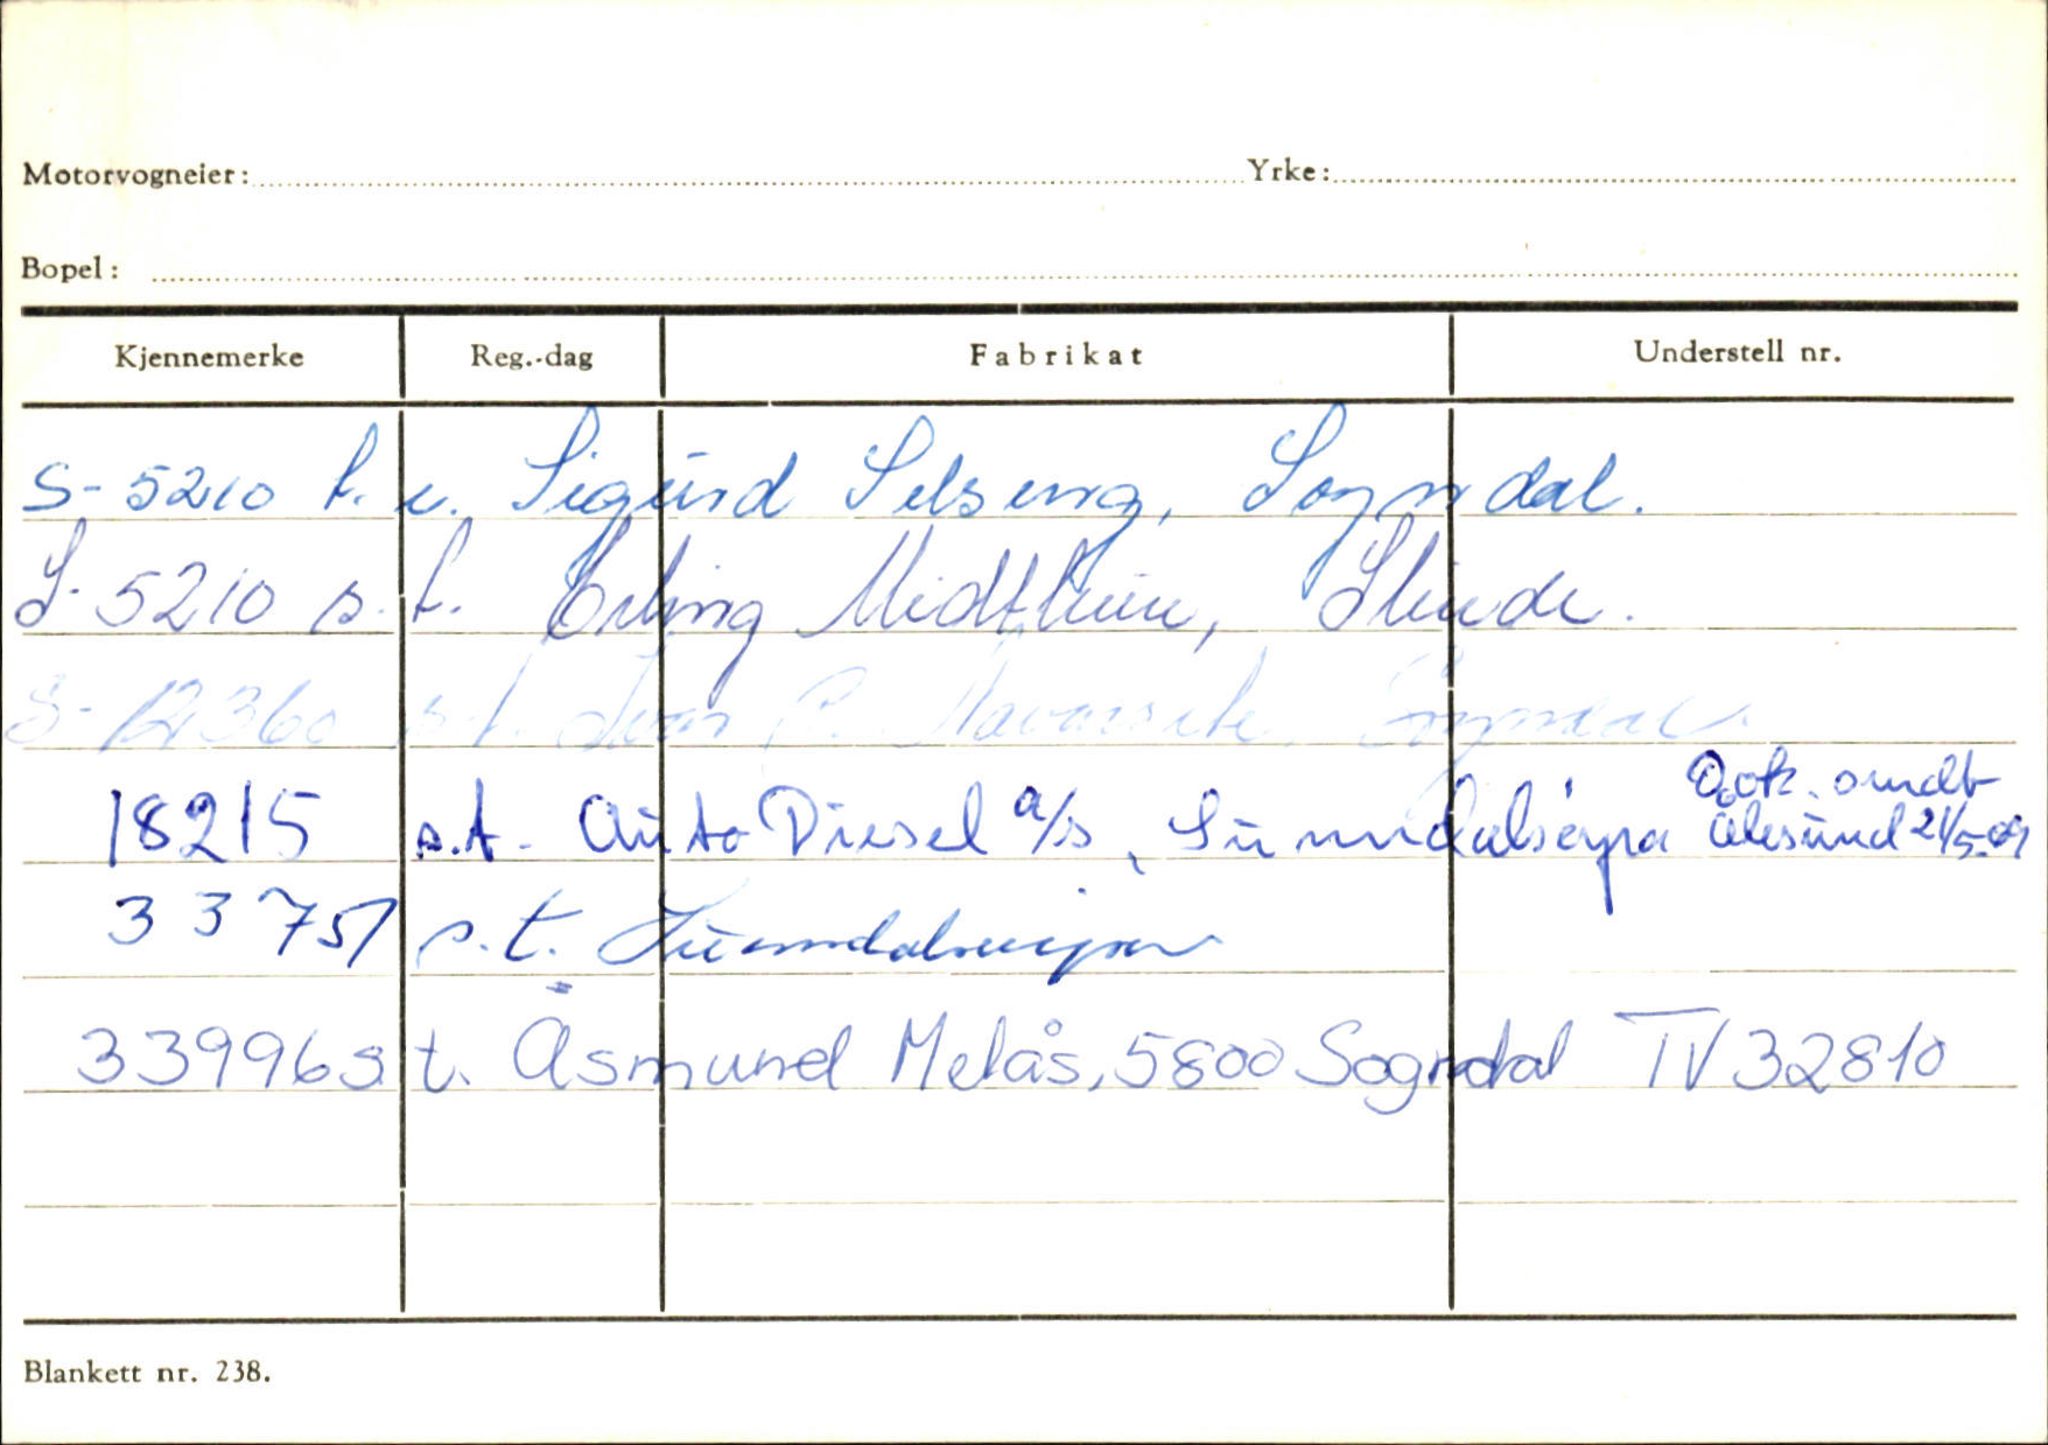 Motorvogneier: Yrke:
Bopel:
Kjennemerke Reg.-dag Fabrikat Understell nr.
S- 5210 f. u. Sigurd Selseng, Sogndal.
S- 5210 s. t. Erling Midthun, Slinde.
S- 12360 s.t. Ivar Sogndal
Dok. sendt
18215 s.t. Auto Diesel a/s, Sunndalsøyra Ålesund 21/5-
3375 s.t. Sunndalsøyra
33996 s.t. Åsmund Melås, 5800 Sogndal TV 32810
Blankett nr. 238.